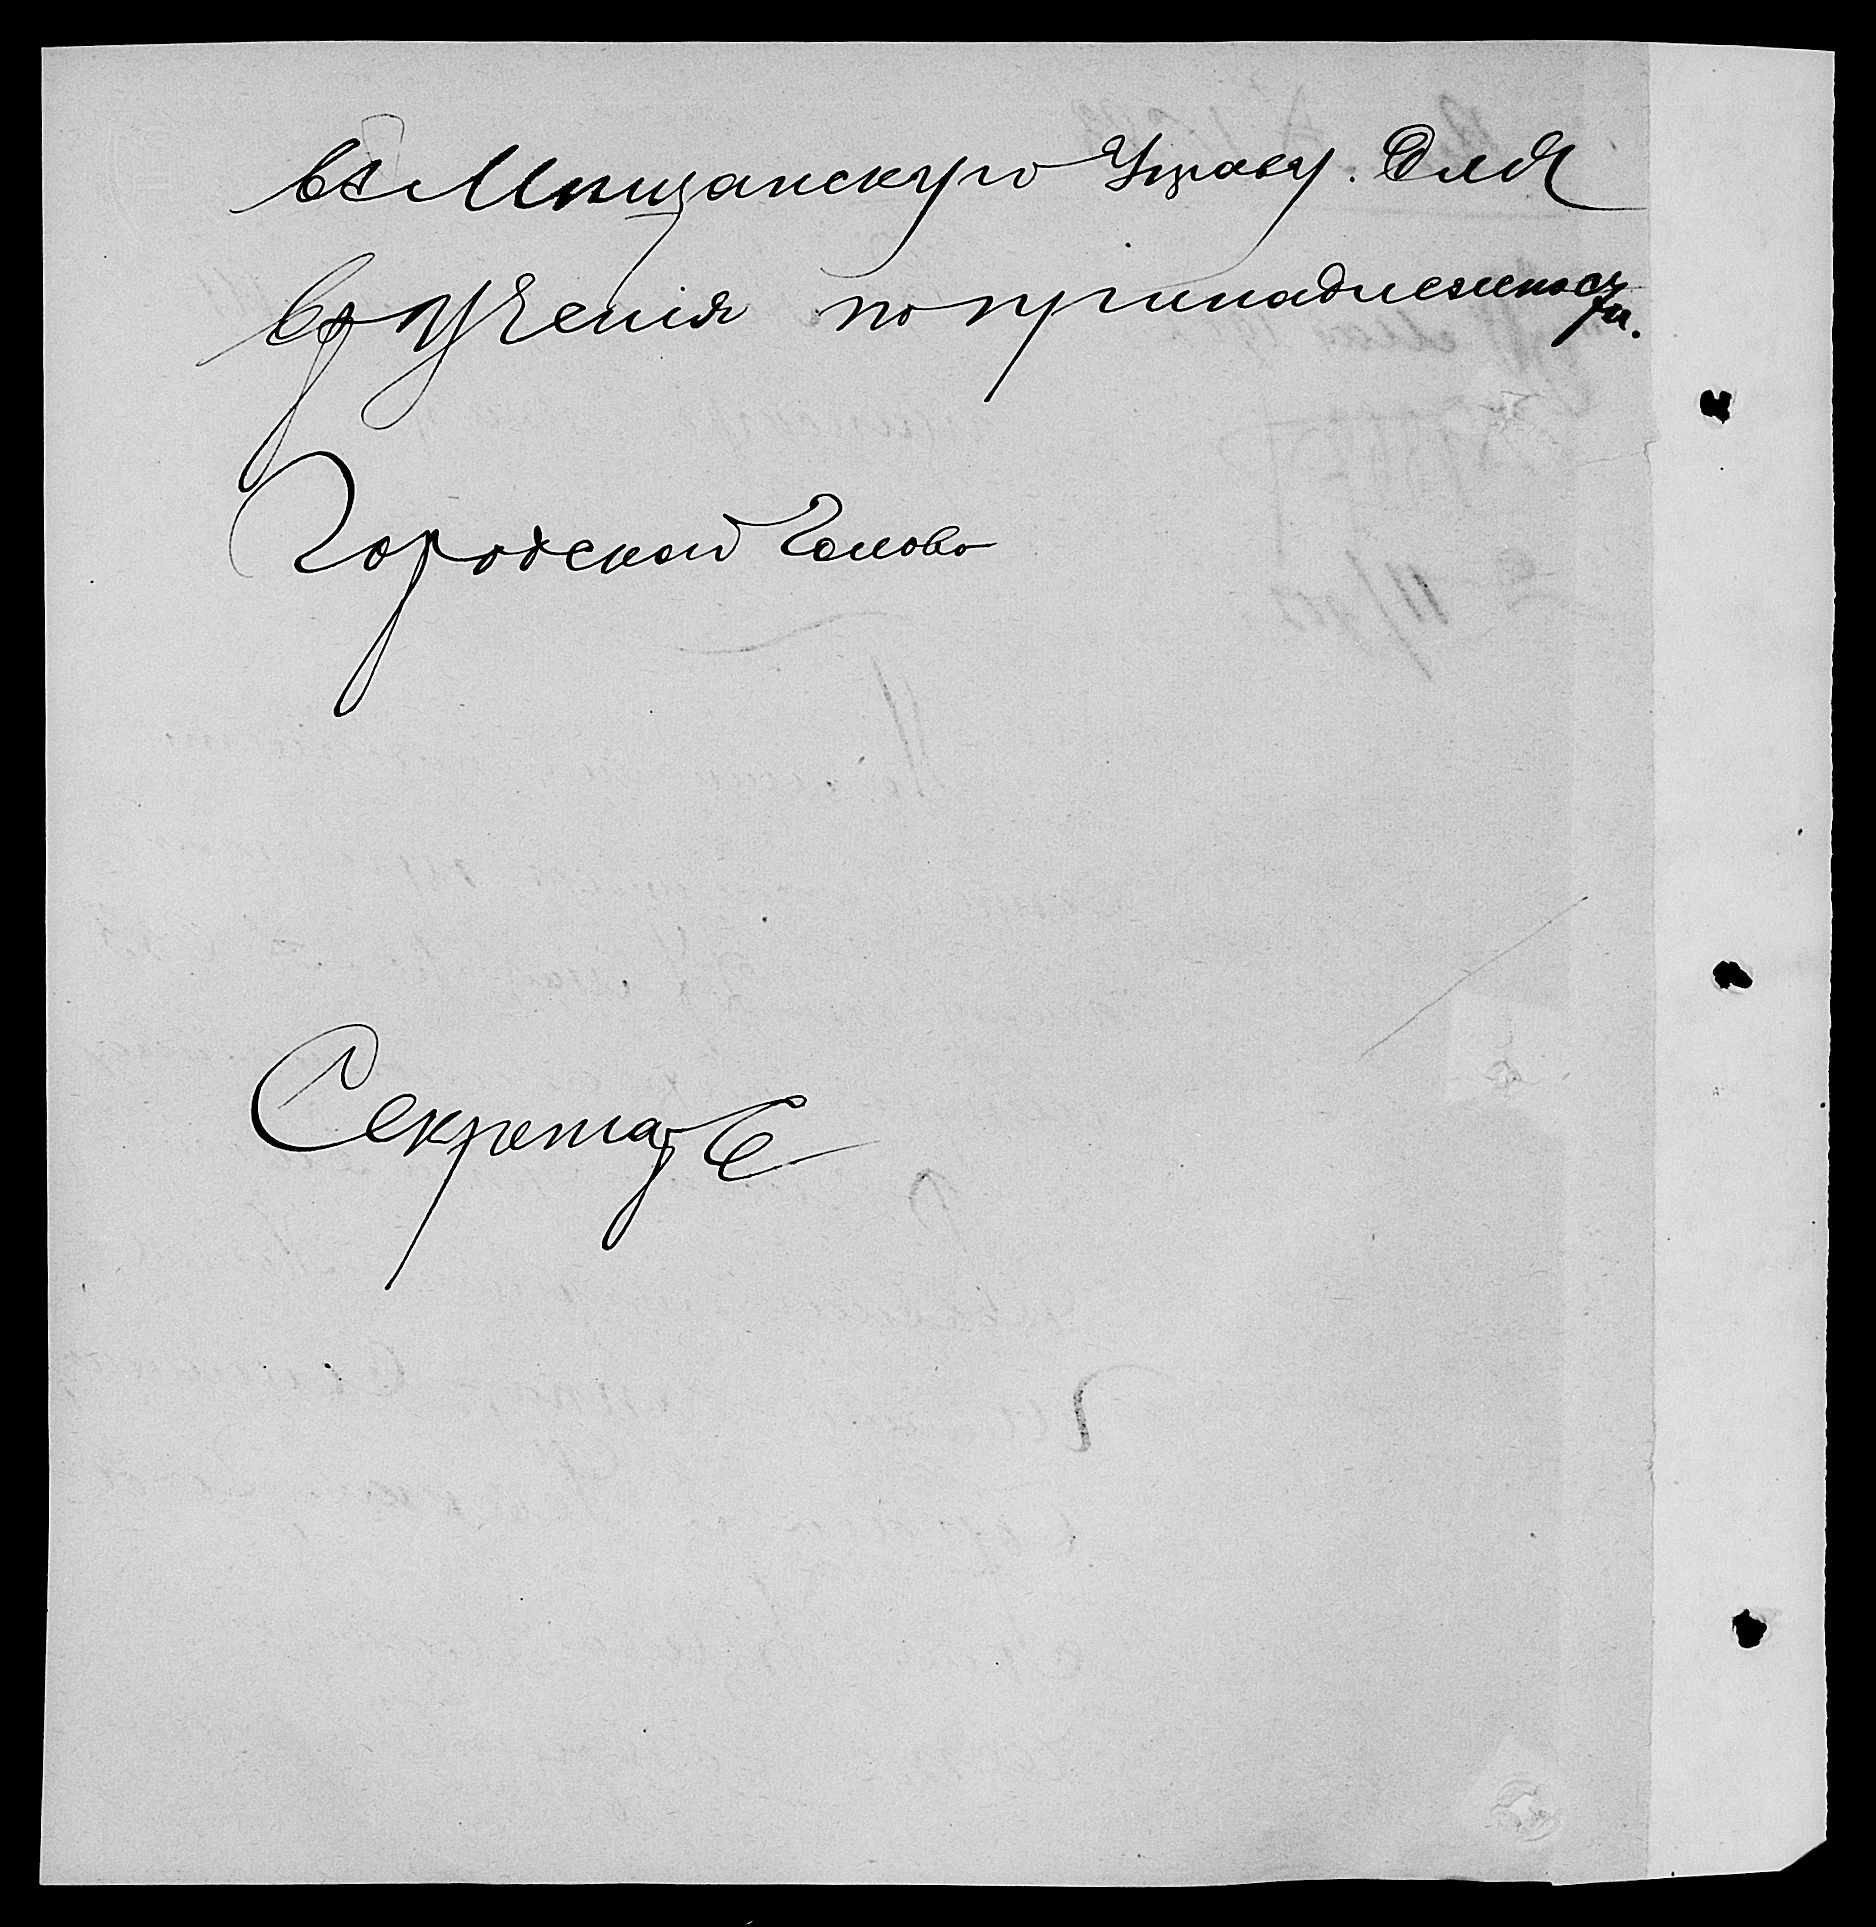 въ Мѣщанскую Управу. Для
врученія по принадлежности.
Городской Голова
Секретарь